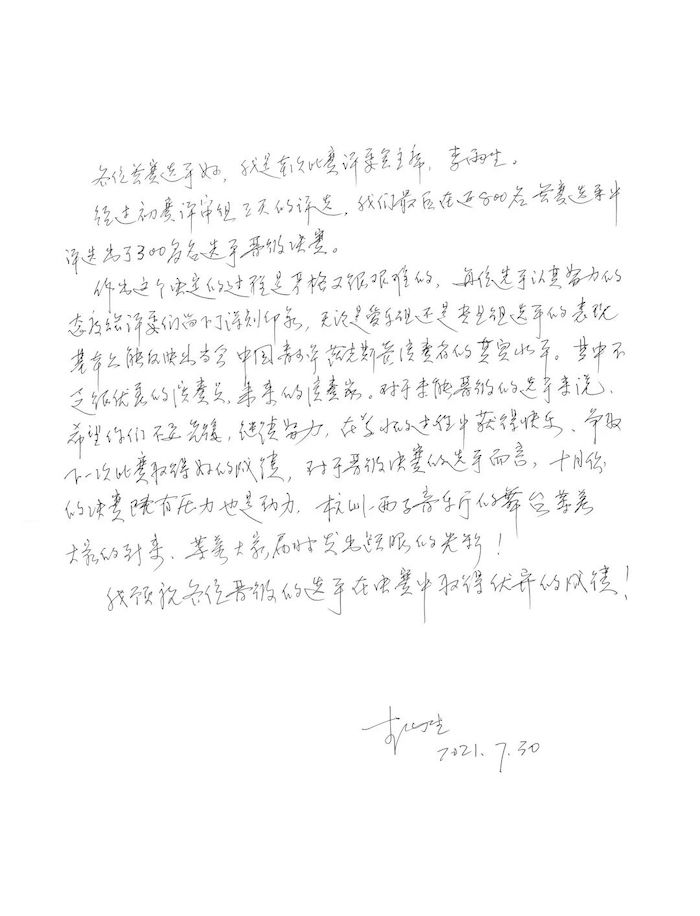 各位参赛选手好，我是本次比赛评委会主席，李雨生。
经过初赛评审组三天的评选，我们最后在近800名参赛选手中
评选出了300多名选手晋级决赛。
作出这个决定的过程是严格又很艰难的，每位选手认真努力的
态度给评委们留下了深刻印象，无论是爱乐组还是专业组选手的表现
基本上能反映出当今中国青少年萨克斯管演奏者的真实水平。其中不
乏很优秀的演奏员、未来的演奏家。对于未能晋级的选手来说，
希望你们不要气馁，继续努力，在学习的过程中获得快乐、争取
下一次比赛取得好的成绩，对于晋级决赛的选手而言，十月份
的决赛既有压力也是动力，杭州西子音乐厅的舞台等着
大家的到来、等着大家届时发出耀眼的光彩！
我预祝各位晋级的选手在决赛中取得优异的成绩！
李雨生
2021.7.30